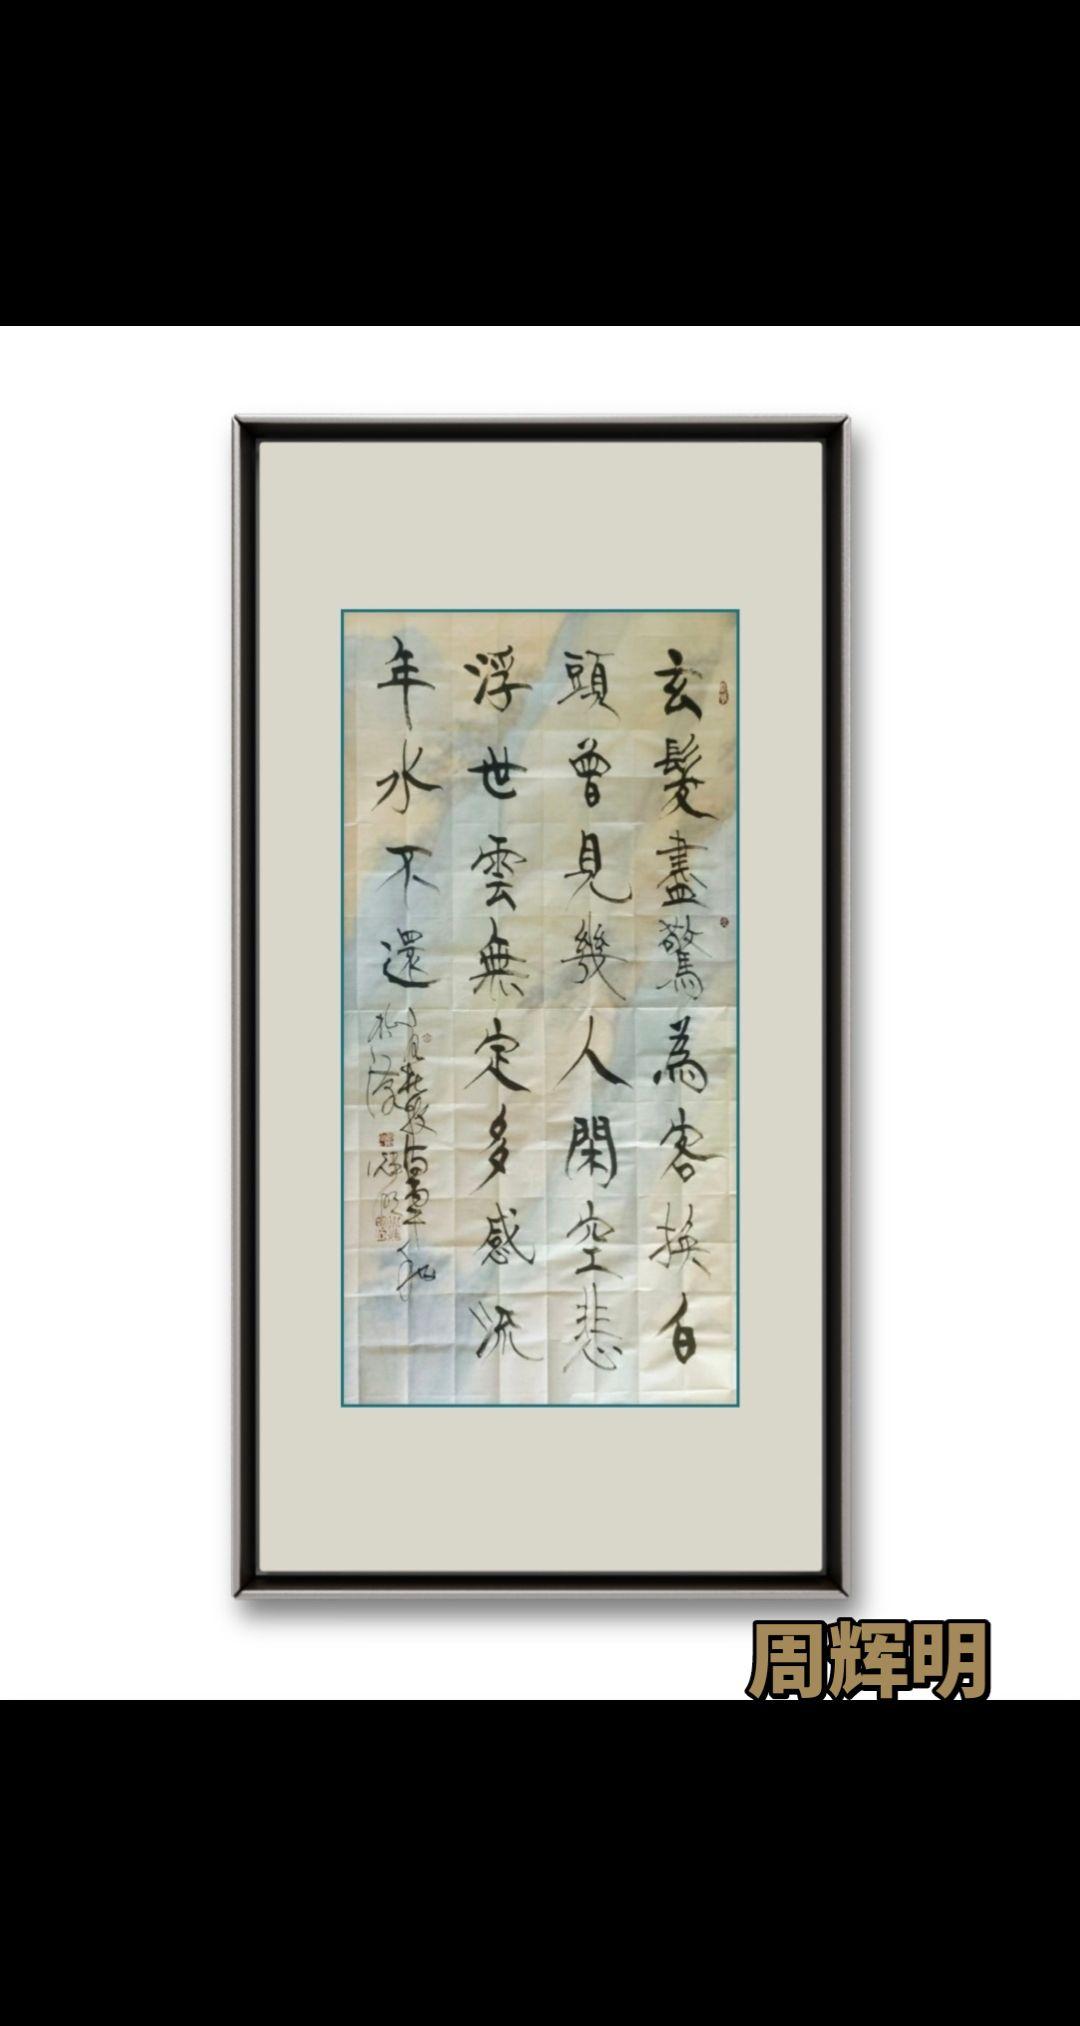 玄髮盡驚為客換白
頭曾見幾人閑空悲
浮世雲無定多感流
年水不還
周辉明